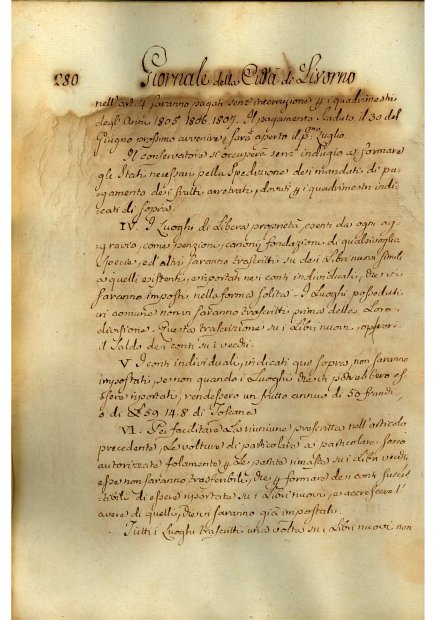 280 Giornale della Città di Livorno
nell'art. 4 saranno pagati senz'interruzione p i quadrimestri
degl'Anni 1805 1806 1807. Il pagamento scaduto il 30 del
Giugno prossimo avvenire sarà aperto il p.mo Luglio.
Il conservatore si occuperà senz'indugio a formare
gli Stati necessari pella Spedizione dei mandati di pa-
gamento dei frutti arretrati, dovuti p i quadrimestri indi-
cati di sopra.
IV. I Luoghi di Libera proprietà, esenti da ogni ag-
gravio, come pensioni, canoni, fondazioni di qualsivoglia
specie, ed altri, saranno trascritti su dei Libri nuovi simili
a quelli esistenti, e riportati nei conti individuali, che vi
saranno imposti nella forma solita. I Luoghi, posseduti
in comune non vi saranno trascritti prima della Loro
divisione. Questa trascrizione su i Libri nuovi, opererà
il Saldo dei conti su i vecchi.
V. I conti individuali, indicati qui sopra non saranno
impostati, se non quando i Luoghi che vi potrebbero es-
sere riportati, rendessero un frutto annuo di 50 franchi
o di 59.14.8 di Toscana
VI. Per facilitare La riunione prescritta nell'articolo
precedente, Le volture di particolare a particolare sono
autorizzate solamente p Le partite rimaste su i Libri vecchi,
esse non saranno trasferibili, che p formare dei conti suscet-
tibili di essere riportati su i Libri nuovi, o accrescere l'
avere di quelli, che vi saranno già impostati.
Tutti i Luoghi trascritti una volta su i Libri nuovi non